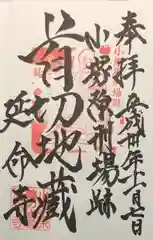 奉拝 平成卅年十一月七日
小塚原刑場跡
首切地蔵
延命寺